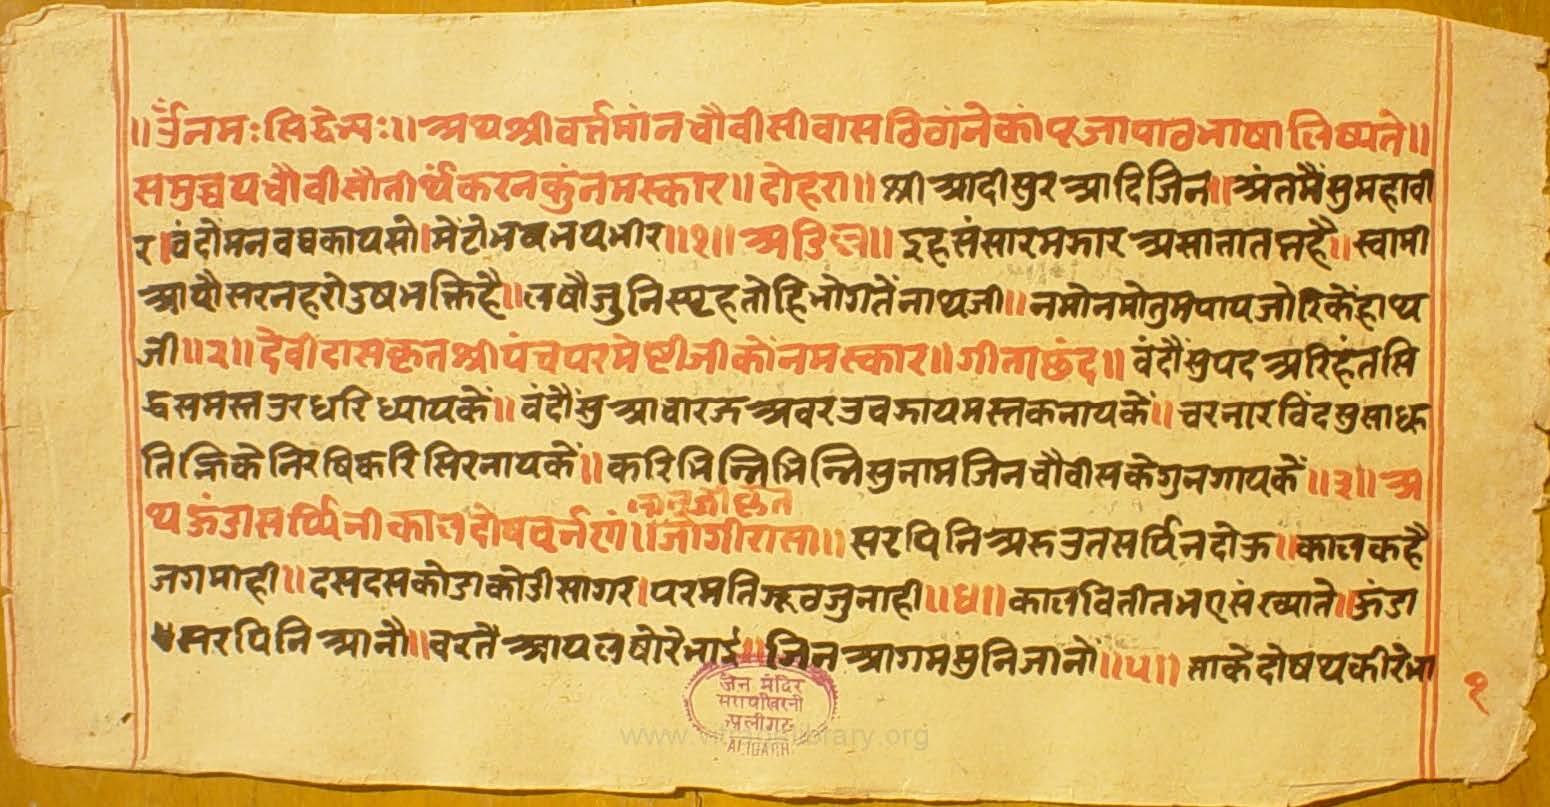 ॥ॐनमःसिद्धेभ्यः॥अथश्रीवर्त्तमांनचौवीसीवासठिठांनेकांपूजापाठभाषालिष्यते॥
समुच्चयचौवीसौतीर्थंकरनकुंनमस्कार॥दोहरा॥श्रीआदीसुरआदिजिन॥अंतमैंसुमहावी
र।वंदोमनवचकायसो।मेंटोभवभयभीर॥१॥अडिल॥इहसंसारमझारअसातातप्तहै॥स्वामी
आयौसरनहरोदुषभक्तिहै॥लषौजुनिस्पृहतोहिभोगतेंनाथजी॥नमोनमोतुमपायजोरिकेंहाथ
जी॥२॥देवीदासकृतश्रीपंचपरमेष्टीजीकोंनमस्कार॥गीताछंद॥वंदौंसुपदअरिहंतसि
द्धसमस्तउरधरिध्यायकें॥वंदौंसुआचारजअवरउवझायमस्तकनायकें॥चरनारविंदसुसाधू
तिन्हिकेनिरषिकरिसिरनायकें॥करिभिन्निभिन्निसुनामजिनचौवीसकेगुनगायकें॥३॥अ
थऊंडासर्प्पिनीकालदोषवर्ननं॥जोगीरासा॥सरपिनिअरुउतसर्पिनदोऊ॥कालकहै
जगमाही॥दसदसकोडाकोडीसागर।परमतिझूठजुनाही॥४॥कालवितीतभएसंख्याते॥ऊंडा
सरपिनिआनौ॥वरतैआयलषोरेभाई॥जिनआगमसुनिजानों॥५॥ताकेदोषथकीरेभा
१
जैन मंदिर
अलीगढ़
ALIGARH